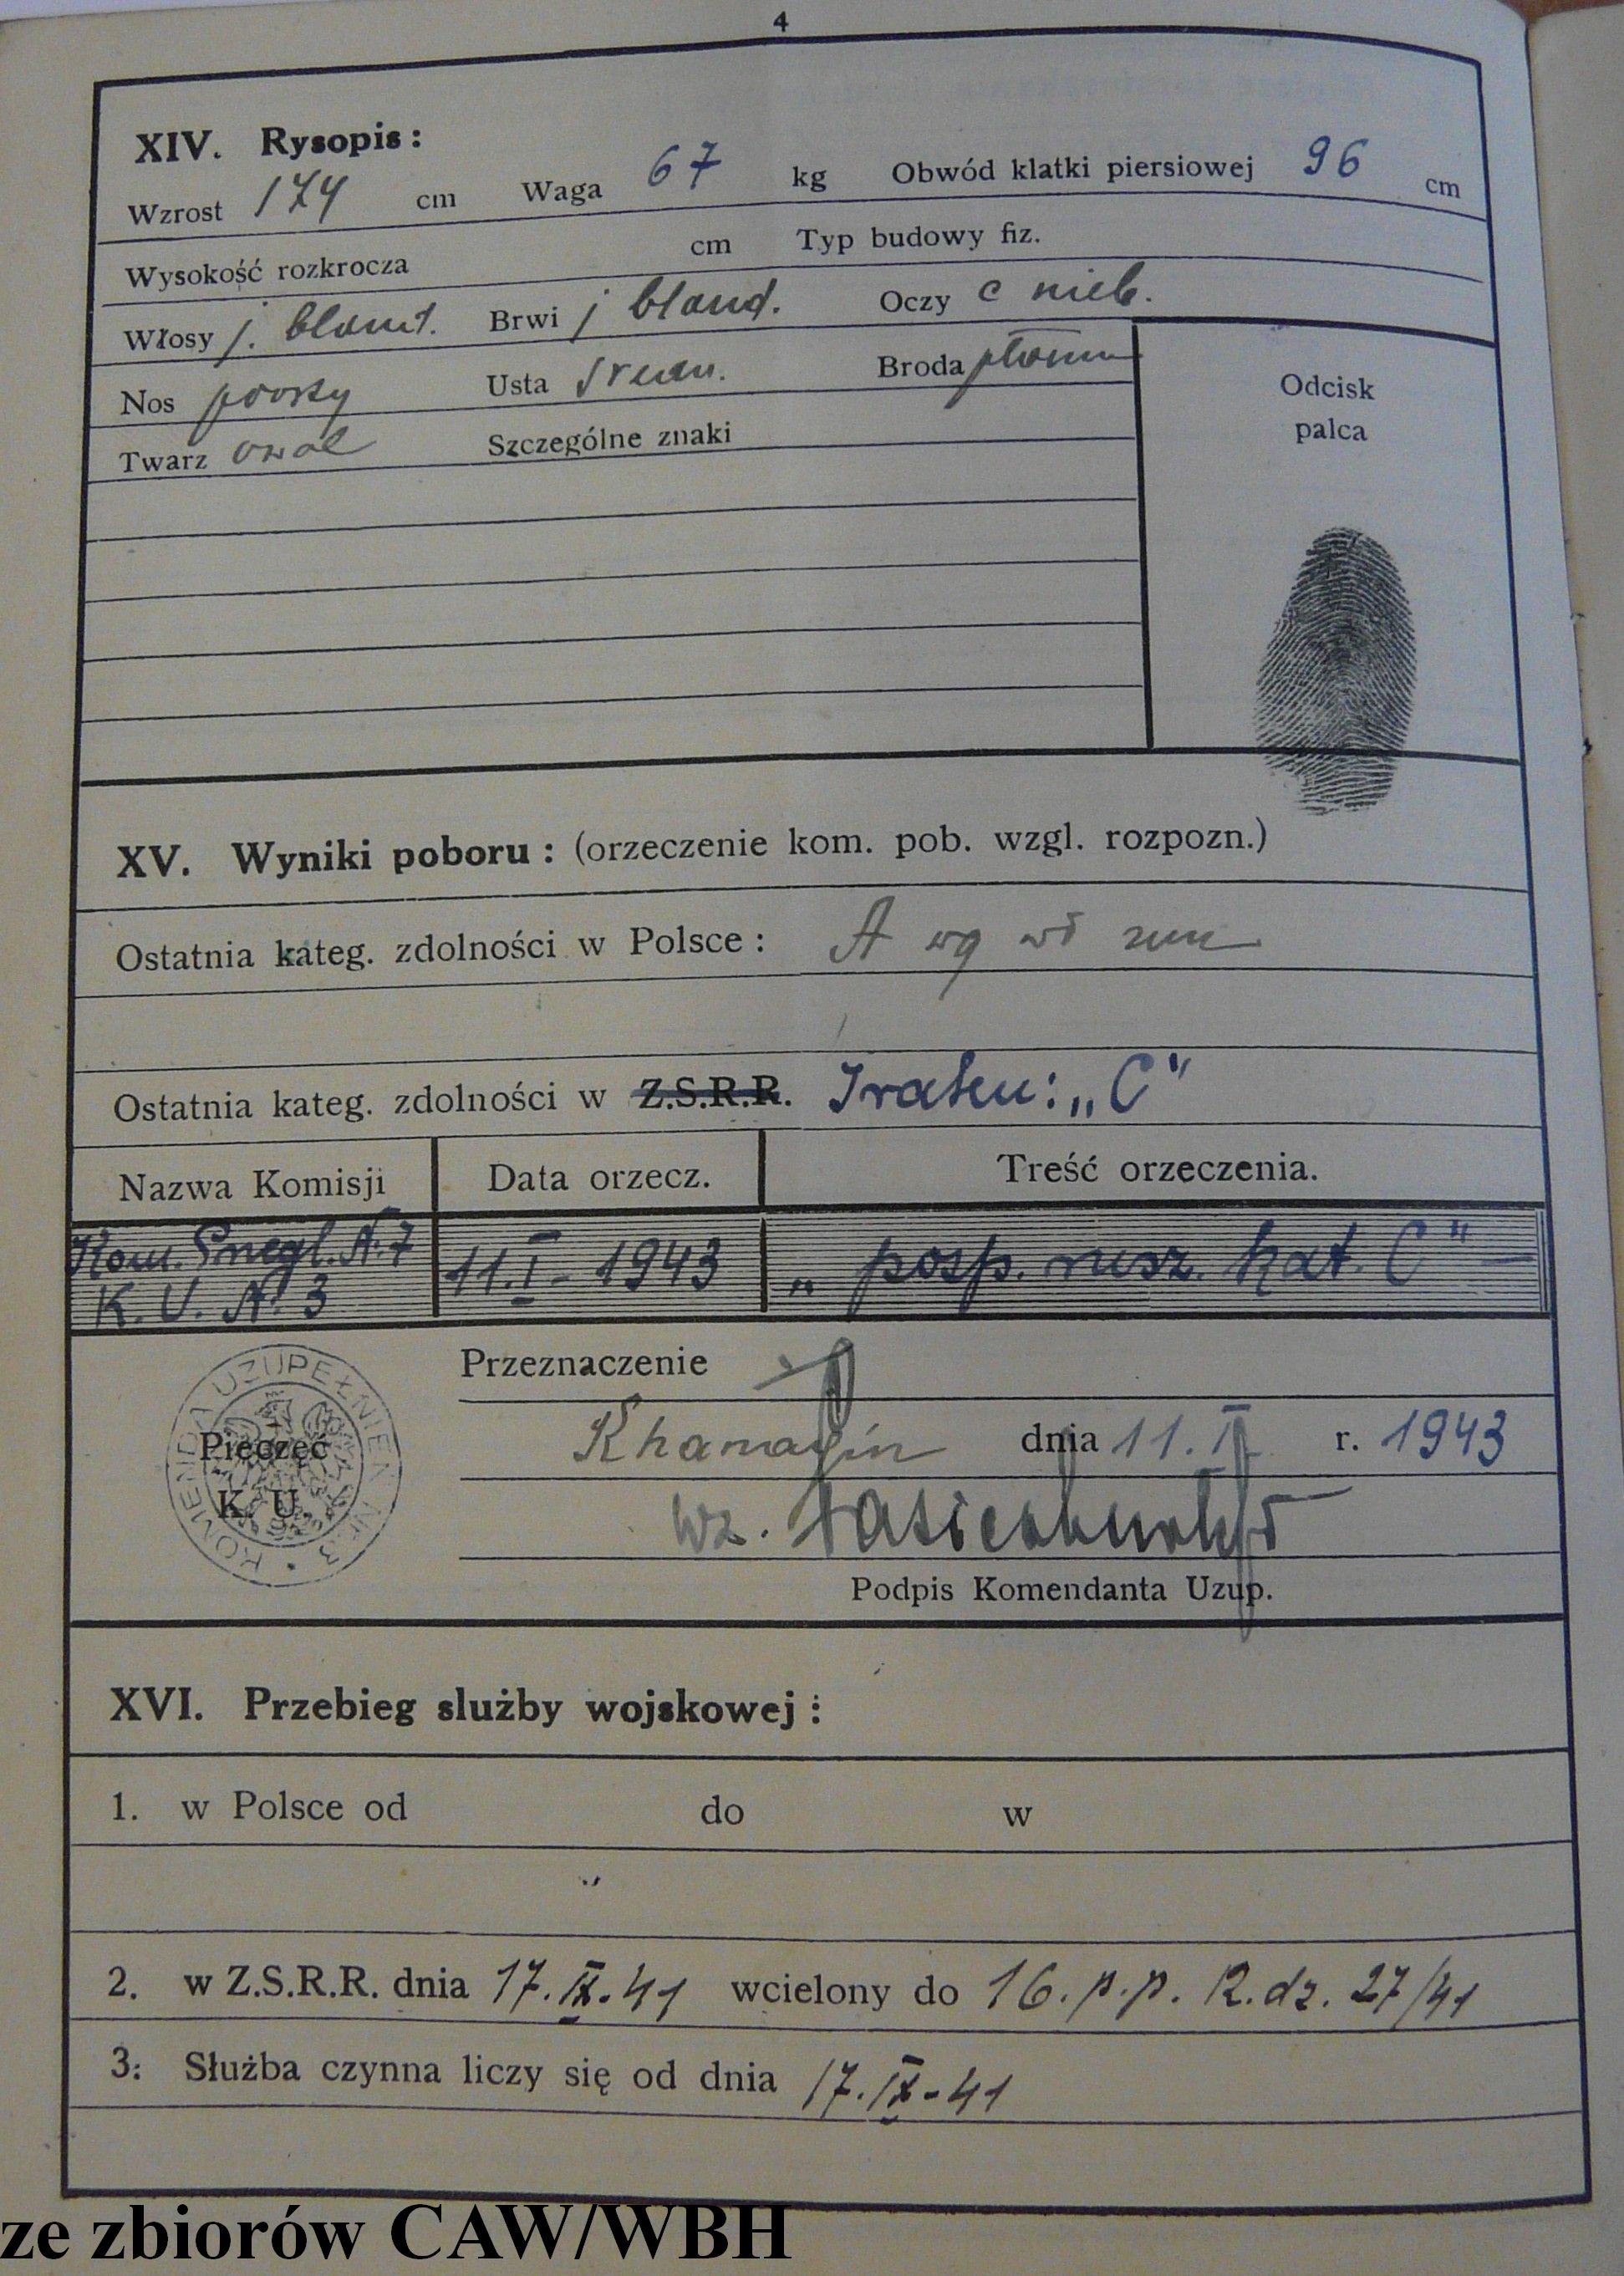 4
XIV. Rysopis:
Wzrost 174 cm Waga 67 kg Obwód klatki piersiowej 96 cm
Wysokość rozkrocza cm Typ budowy fiz.
Włosy j. blond. Brwi j blond. Oczy c nieb.
Nos prosty Usta Broda
Twarz owal Szczególne znaki
Odcisk
palca
XV. Wyniki poboru: (orzeczenie kom. pob. wzgl. rozpozn.)
Ostatnia kateg. zdolności w Polsce: A wg wł
Ostatnia kateg. zdolności w Z.S.R.R. Iraku: „C"
Nazwa Komisji Data orzecz. Treść orzeczenia.
Kom. Przegl. Nr. 7
K. U. Nr. 3 11.I - 1943 „posp. rusz. kat. C" -
Przeznaczenie
KOMENDA UZUPEŁNIEŃ NR 3
Pieczęć
K. U.
Khanaqin dnia 11. I r. 1943
wz.
Podpis Komendanta Uzup.
XVI. Przebieg służby wojskowej:
1. w Polsce od do w
2. w Z.S.R.R. dnia 17.IX.41 wcielony do 16.p.p. R.dz. 27/41
3. Służba czynna liczy się od dnia 17.IX-41
ze zbiorów CAW/WBH